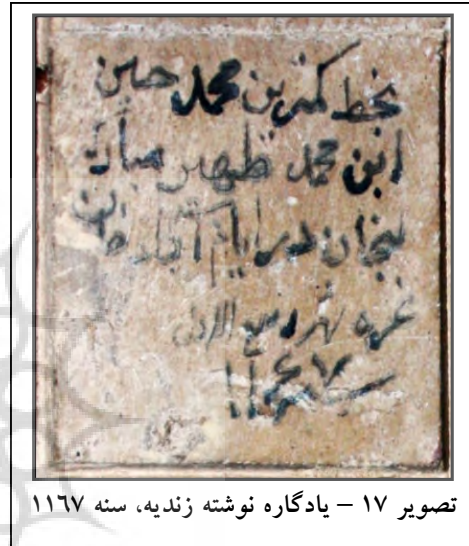 بخط کمترین محمد حسین
ابن محمد ظهیر
لنجان در ایام آباد
غره شهر ربیع الاول
سنه ۱۱۶۷
تصویر ۱۷ – یادگاره نوشته زندیه، سنه ۱۱۶۷